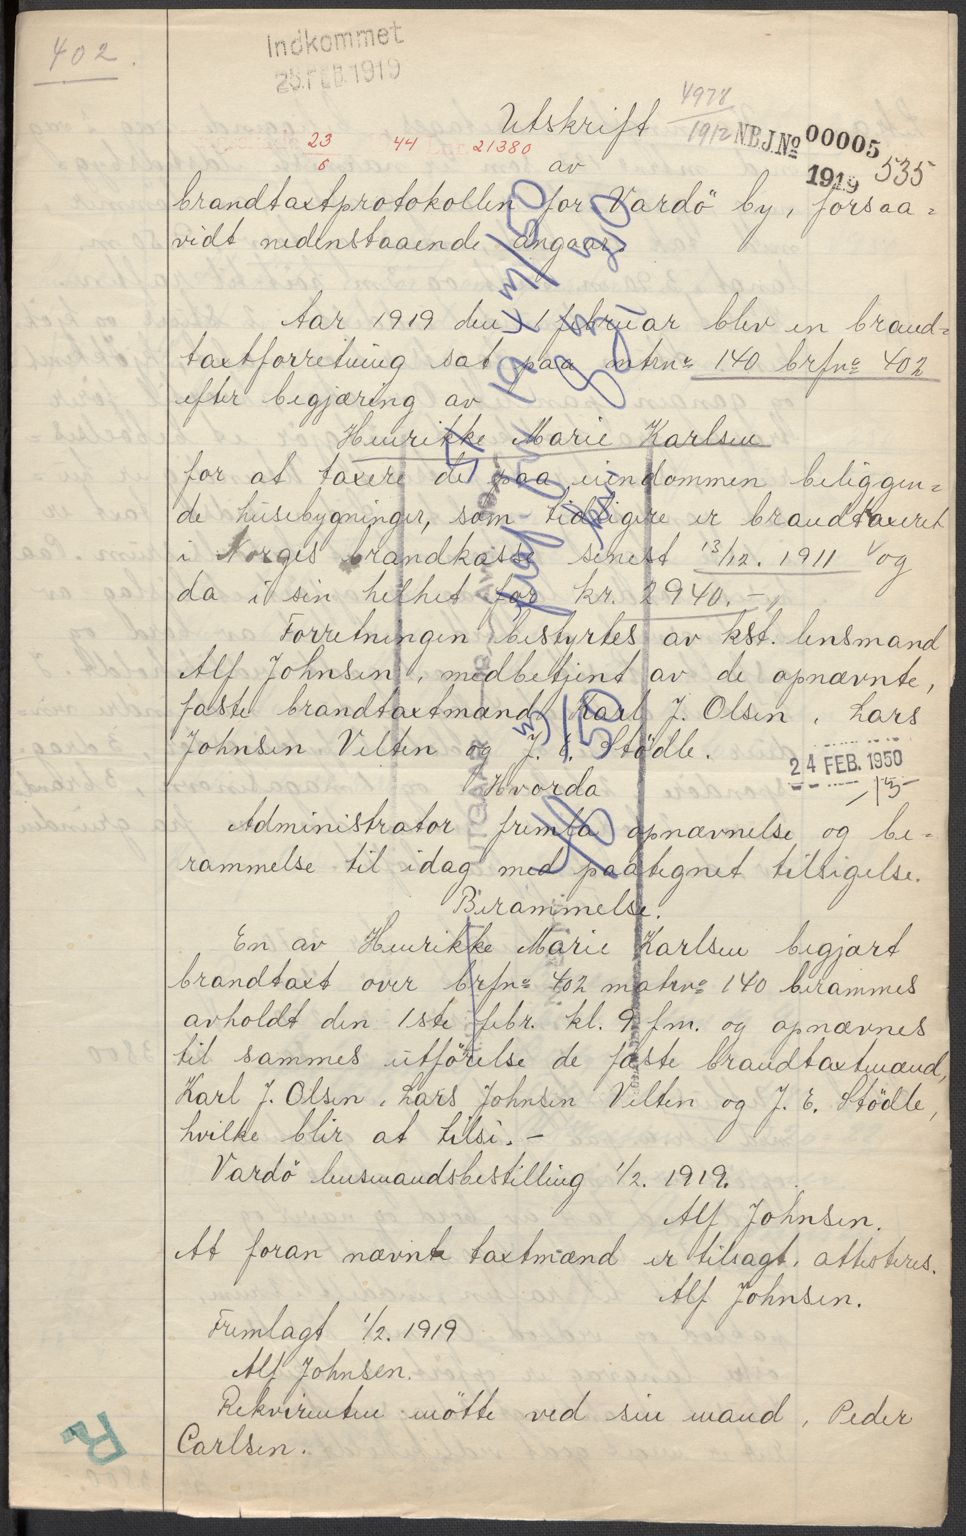 402.
Indkommet
25. FEB. 1919
4978
1912
N.B.J.No 00005
1919
535
23
6
44
21380
Utskrift
av
brandtaxtprotokollen for Vardö by, forsaa=
vidt nedenstaaende angaar.
Aar 1919 den 1 februar blev en brand=
taxtforretning sat paa mtrno 140 brfno 402
efter begjæring av
Henrikke Marie Karlsen
for at taxere de paa eiendommen beliggen=
de husebygninger, som tidligere er brandtaxeret
i Norges brandkasse senest 13/12. 1911 og
da i sin helhet for kr. 2940.-,
Forretningen bestyrtes av kst. lensmand
Alf Johnsen, medbetjent av de opnævnte,
faste brandtaxtmænd Karl J. Olsen, Lars
Johnsen Velten og J. E. Stödle.
24 FEB. 1950
Hvorda
Administrator fremla opnævnelse og be=
rammelse til idag med paategnet tilsigelse.
Berammelse.
En av Henrikke Marie Karlsen begjært
brandtaxt over brfno 402 matrno 140 berammes
avholdt den 1ste febr. kl. 9 fm. og opnævnes
til sammes utförelse de faste brandtaxtmænd,
Karl J. Olsen, Lars Johnsen Velten og J. E. Stödle,
hvilke blir at tilsi. -
Vardö lensmandsbestilling 1/2. 1919.
Alf Johnsen.
At foran nævnte taxtmænd er tilsagt, attesteres.
Alf Johnsen.
Fremlagt 1/2. 1919
Alf Johnsen.
Rekvirenten mötte ved sin mand, Peder
Carlsen.
R